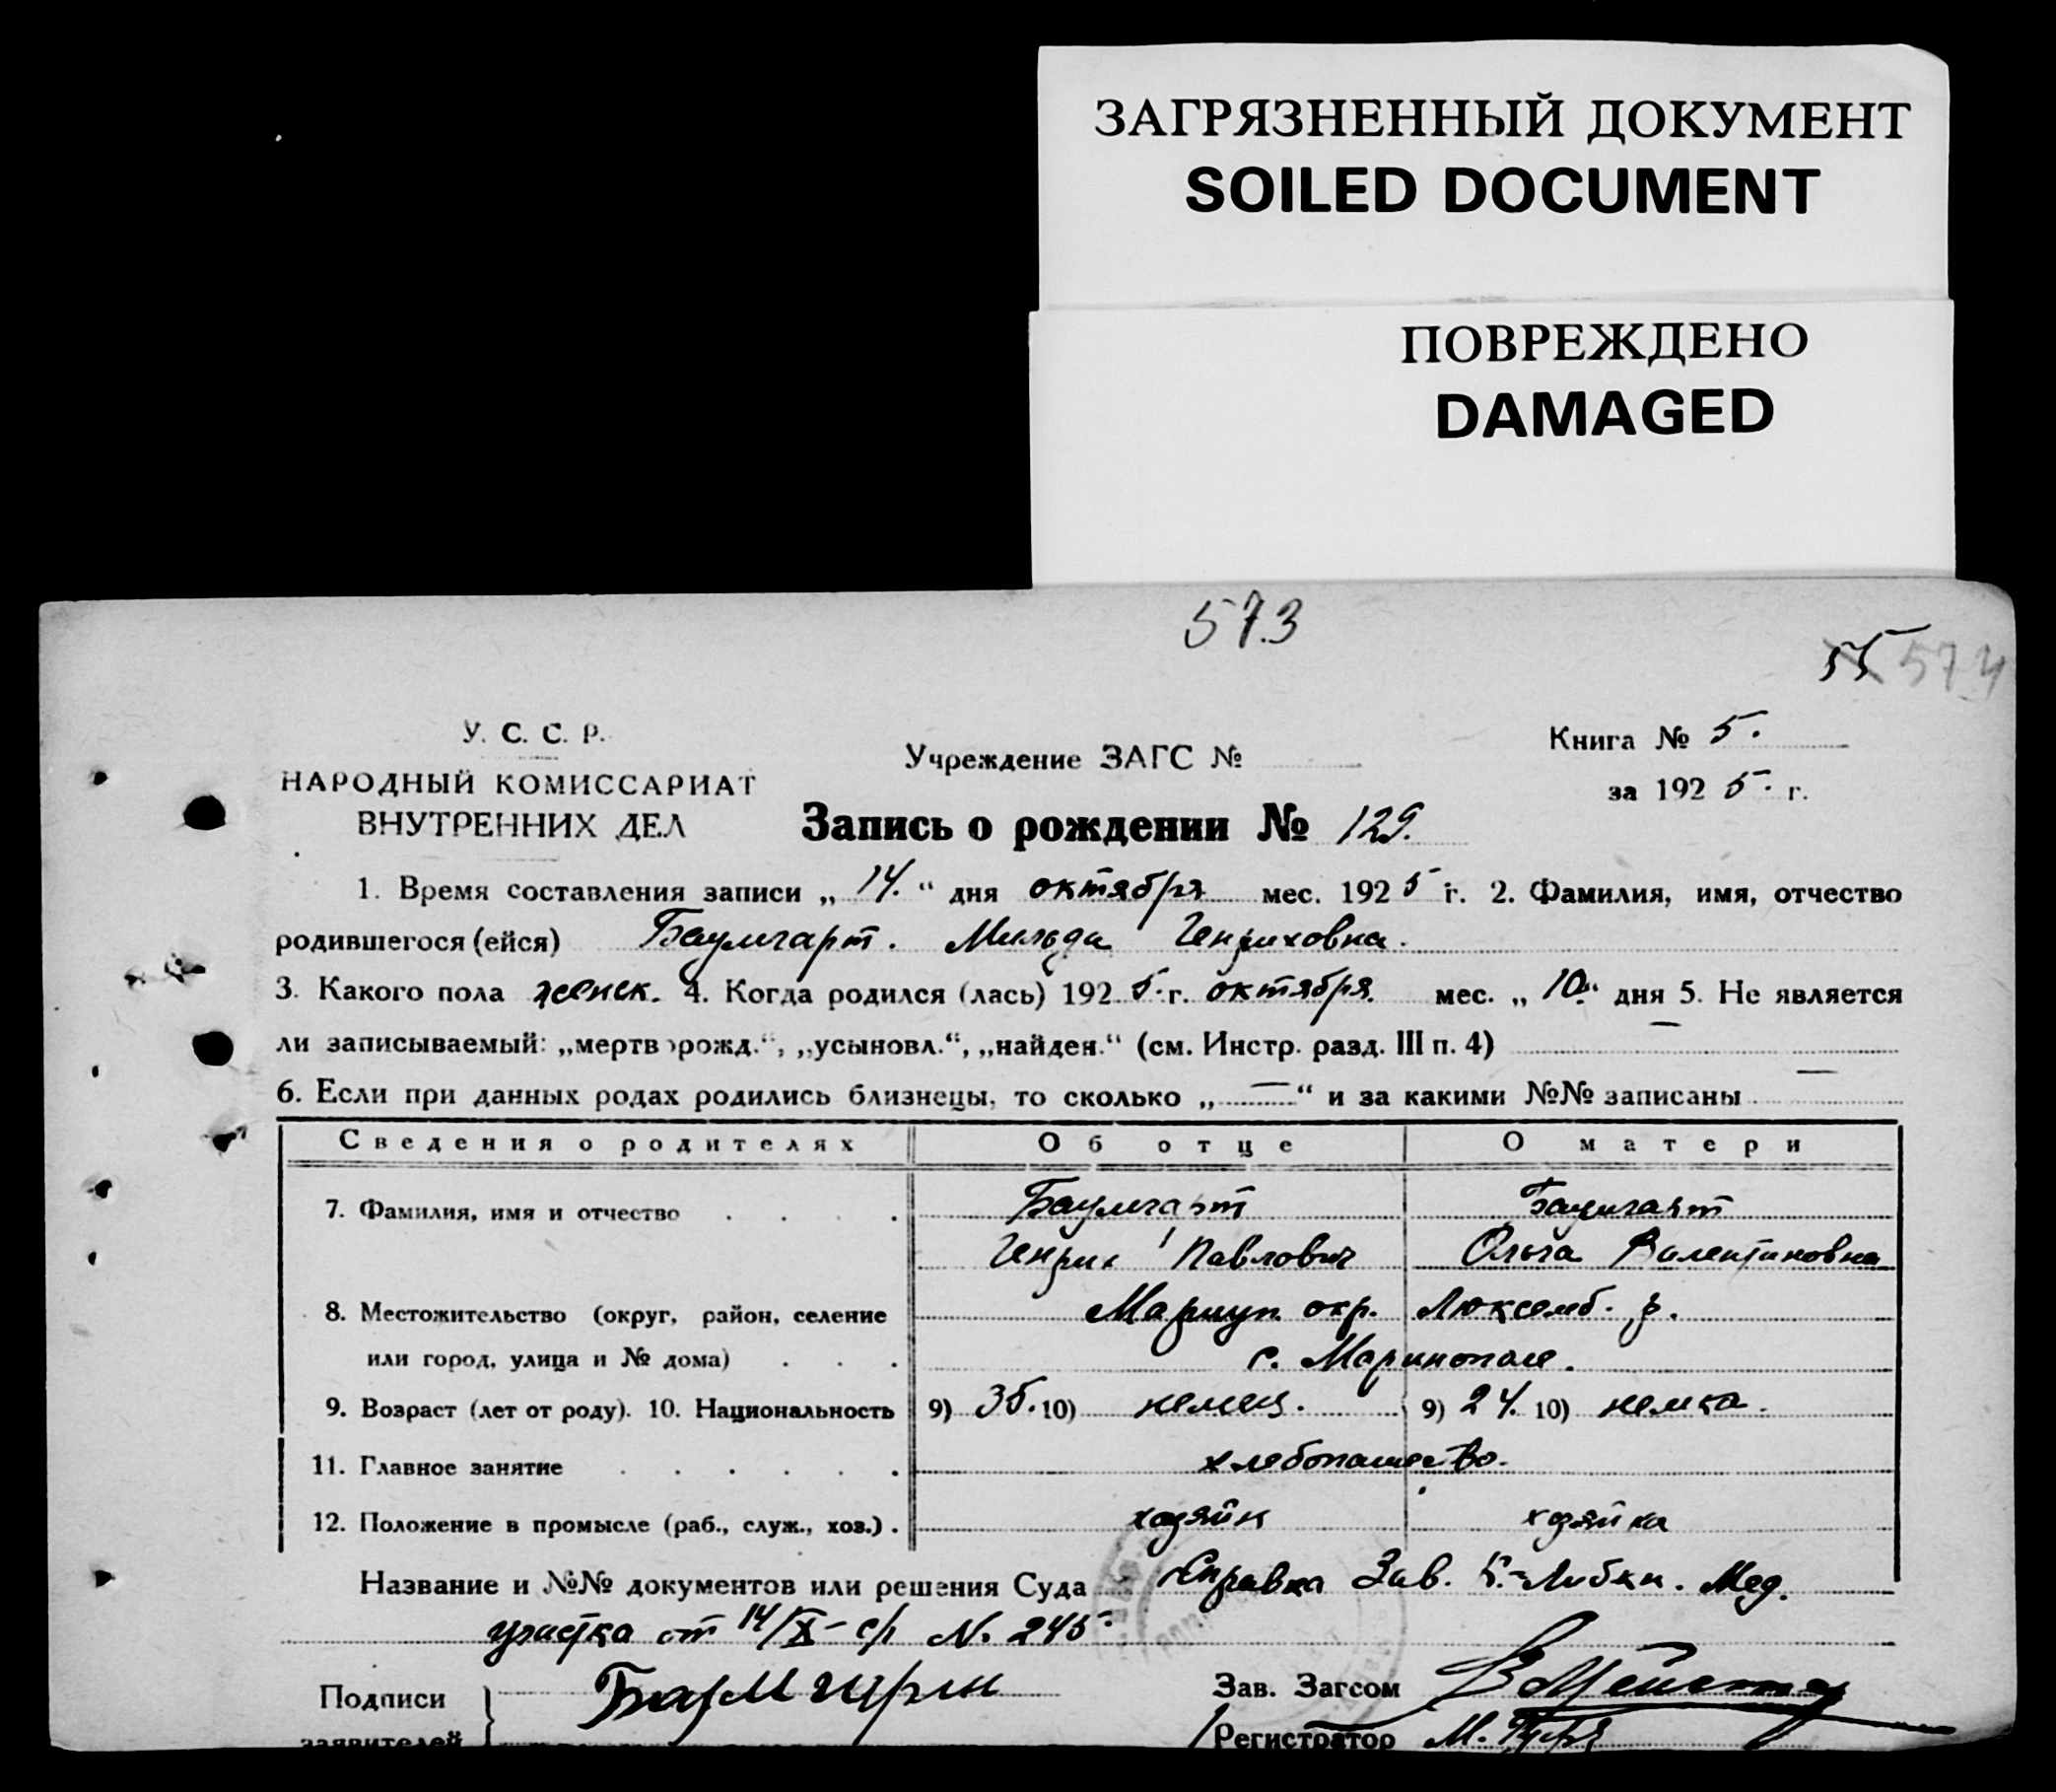 ЗАГРЯЗНЕННЫЙ ДОКУМЕНТ
SOILED DOCUMENT
ПОВРЕЖДЕНО
DAMAGED
573
55 574
У. С. С. Р.
НАРОДНЫЙ КОМИССАРИАТ
ВНУТРЕННИХ ДЕЛ
Учреждение ЗАГС №
Книга № 5.
за 1925. г.
Запись о рождении № 129.
1. Время составления записи „14.“ дня октября мес. 1925 г. 2. Фамилия, имя, отчество
родившегося (ейся) Баумгарт. Мильда Генриховна.
3. Какого пола женск. 4. Когда родился (лась) 1925. г. октября. мес. „10.“ дня 5. Не является
ли записываемый: „мертворожд.“, „усыновл.“, „найден.“ (см. Инстр. разд. III п. 4) —
6. Если при данных родах родились близнецы, то сколько „—“ и за какими №№ записаны —
Сведения о родителях Об отце О матери
7. Фамилия, имя и отчество Баумгарт Баумгарт
Генрих Павлович Ольга Валентиновна
8. Местожительство (округ, район, селение Мариуп. окр. Люксемб. р.
или город, улица и № дома) с. Маринополе.
9. Возраст (лет от роду). 10. Национальность 9) 35. 10) немец. 9) 24. 10) немка.
11. Главное занятие хлебопашество.
12. Положение в промысле (раб., служ., хоз.) хозяйн хозяйка
Название и №№ документов или решения Суда Справка Зав. К.-Либкн. Мед.
участка от 14/X – с/г N. 245.
Подписи заявителей
Зав. Загсом
Регистратор М.